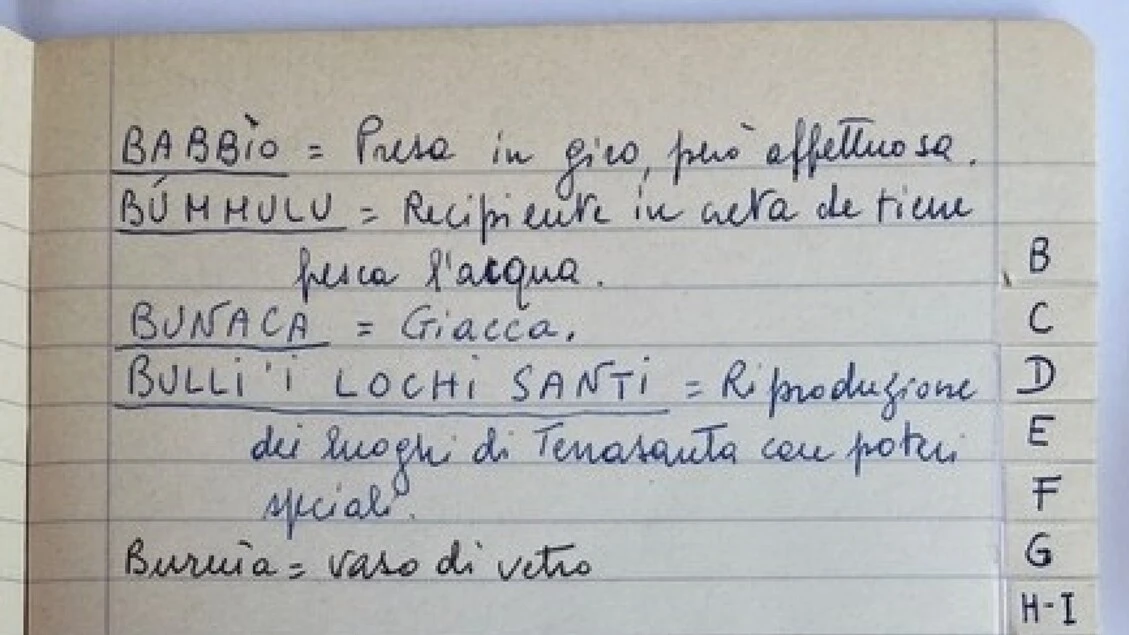 BABBÌO = Presa in giro, però affettuosa.
BÚMMULU = Recipiente in creta che tiene
fresca l'acqua.
BUNACA = Giacca.
BULLI 'I LOCHI SANTI = Riproduzione
dei luoghi di Terrasanta con poteri
speciali.
Burnìa = vaso di vetro
B
C
D
E
F
G
H-I